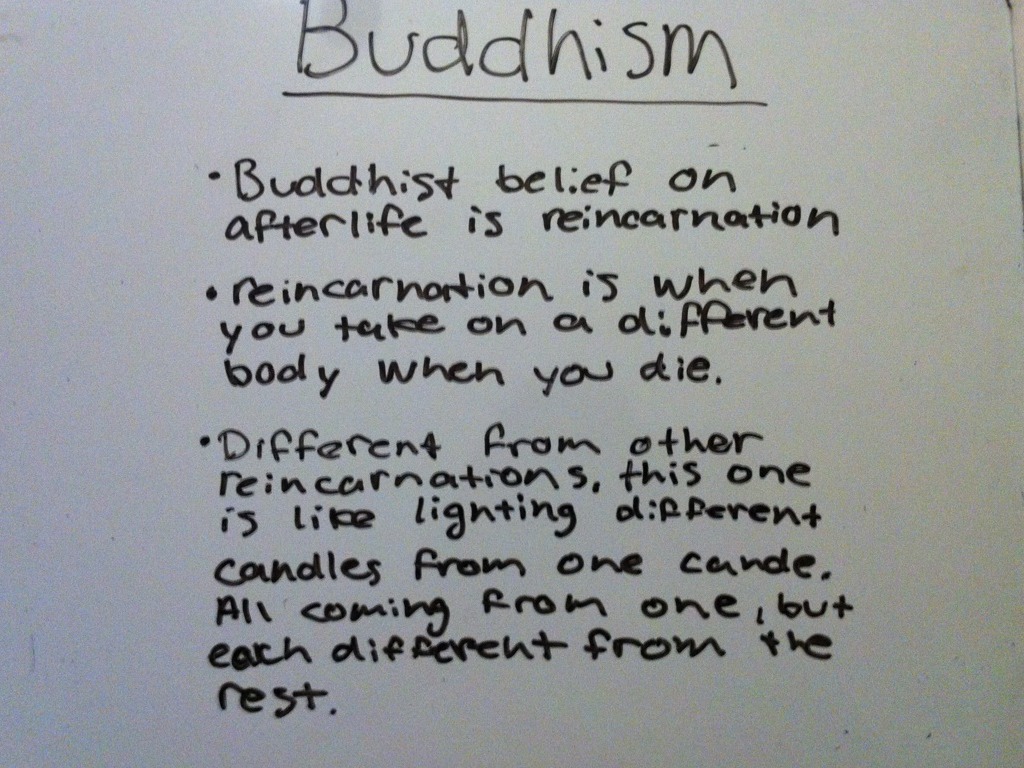 Buddhism
• Buddhist belief on
afterlife is reincarnation
• reincarnation is when
you take on a different
body when you die.
• Different from other
reincarnations, this one
is like lighting different
candles from one cande.
All coming from one, but
each different from the
rest.